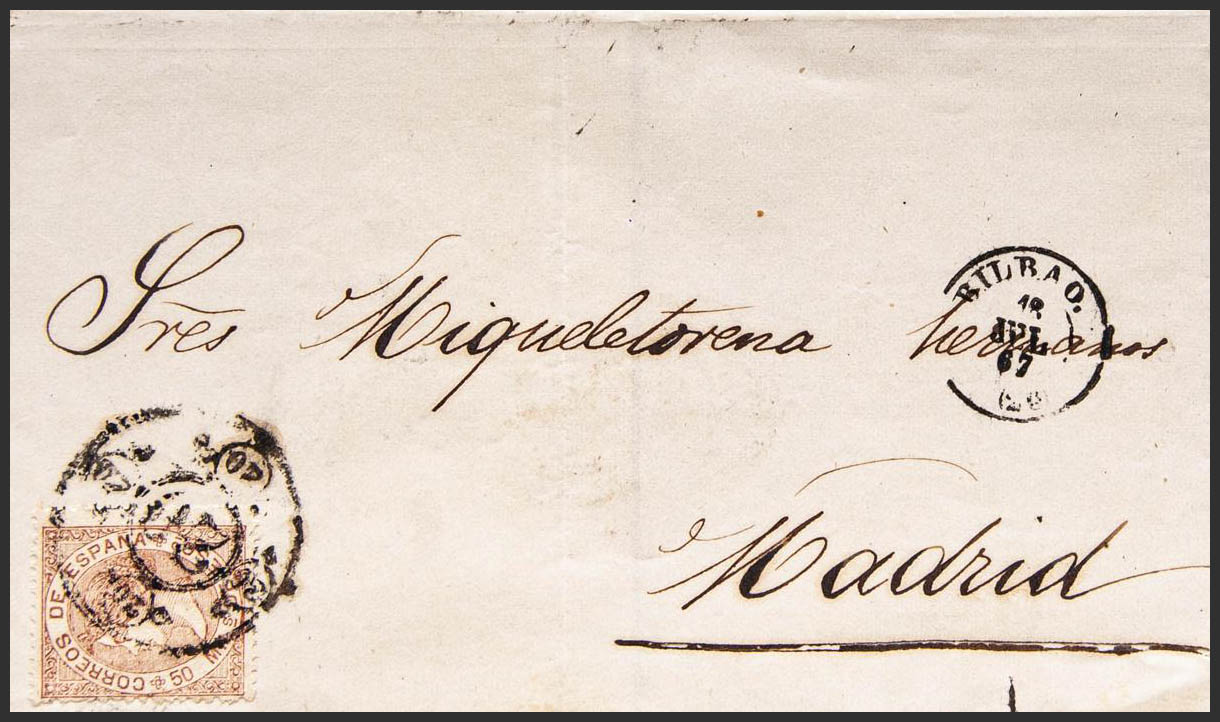 Sres Miqueletorena hermanos
BILBAO.
18
JUL
67
Madrid
CORREOS DE ESPAÑA
50